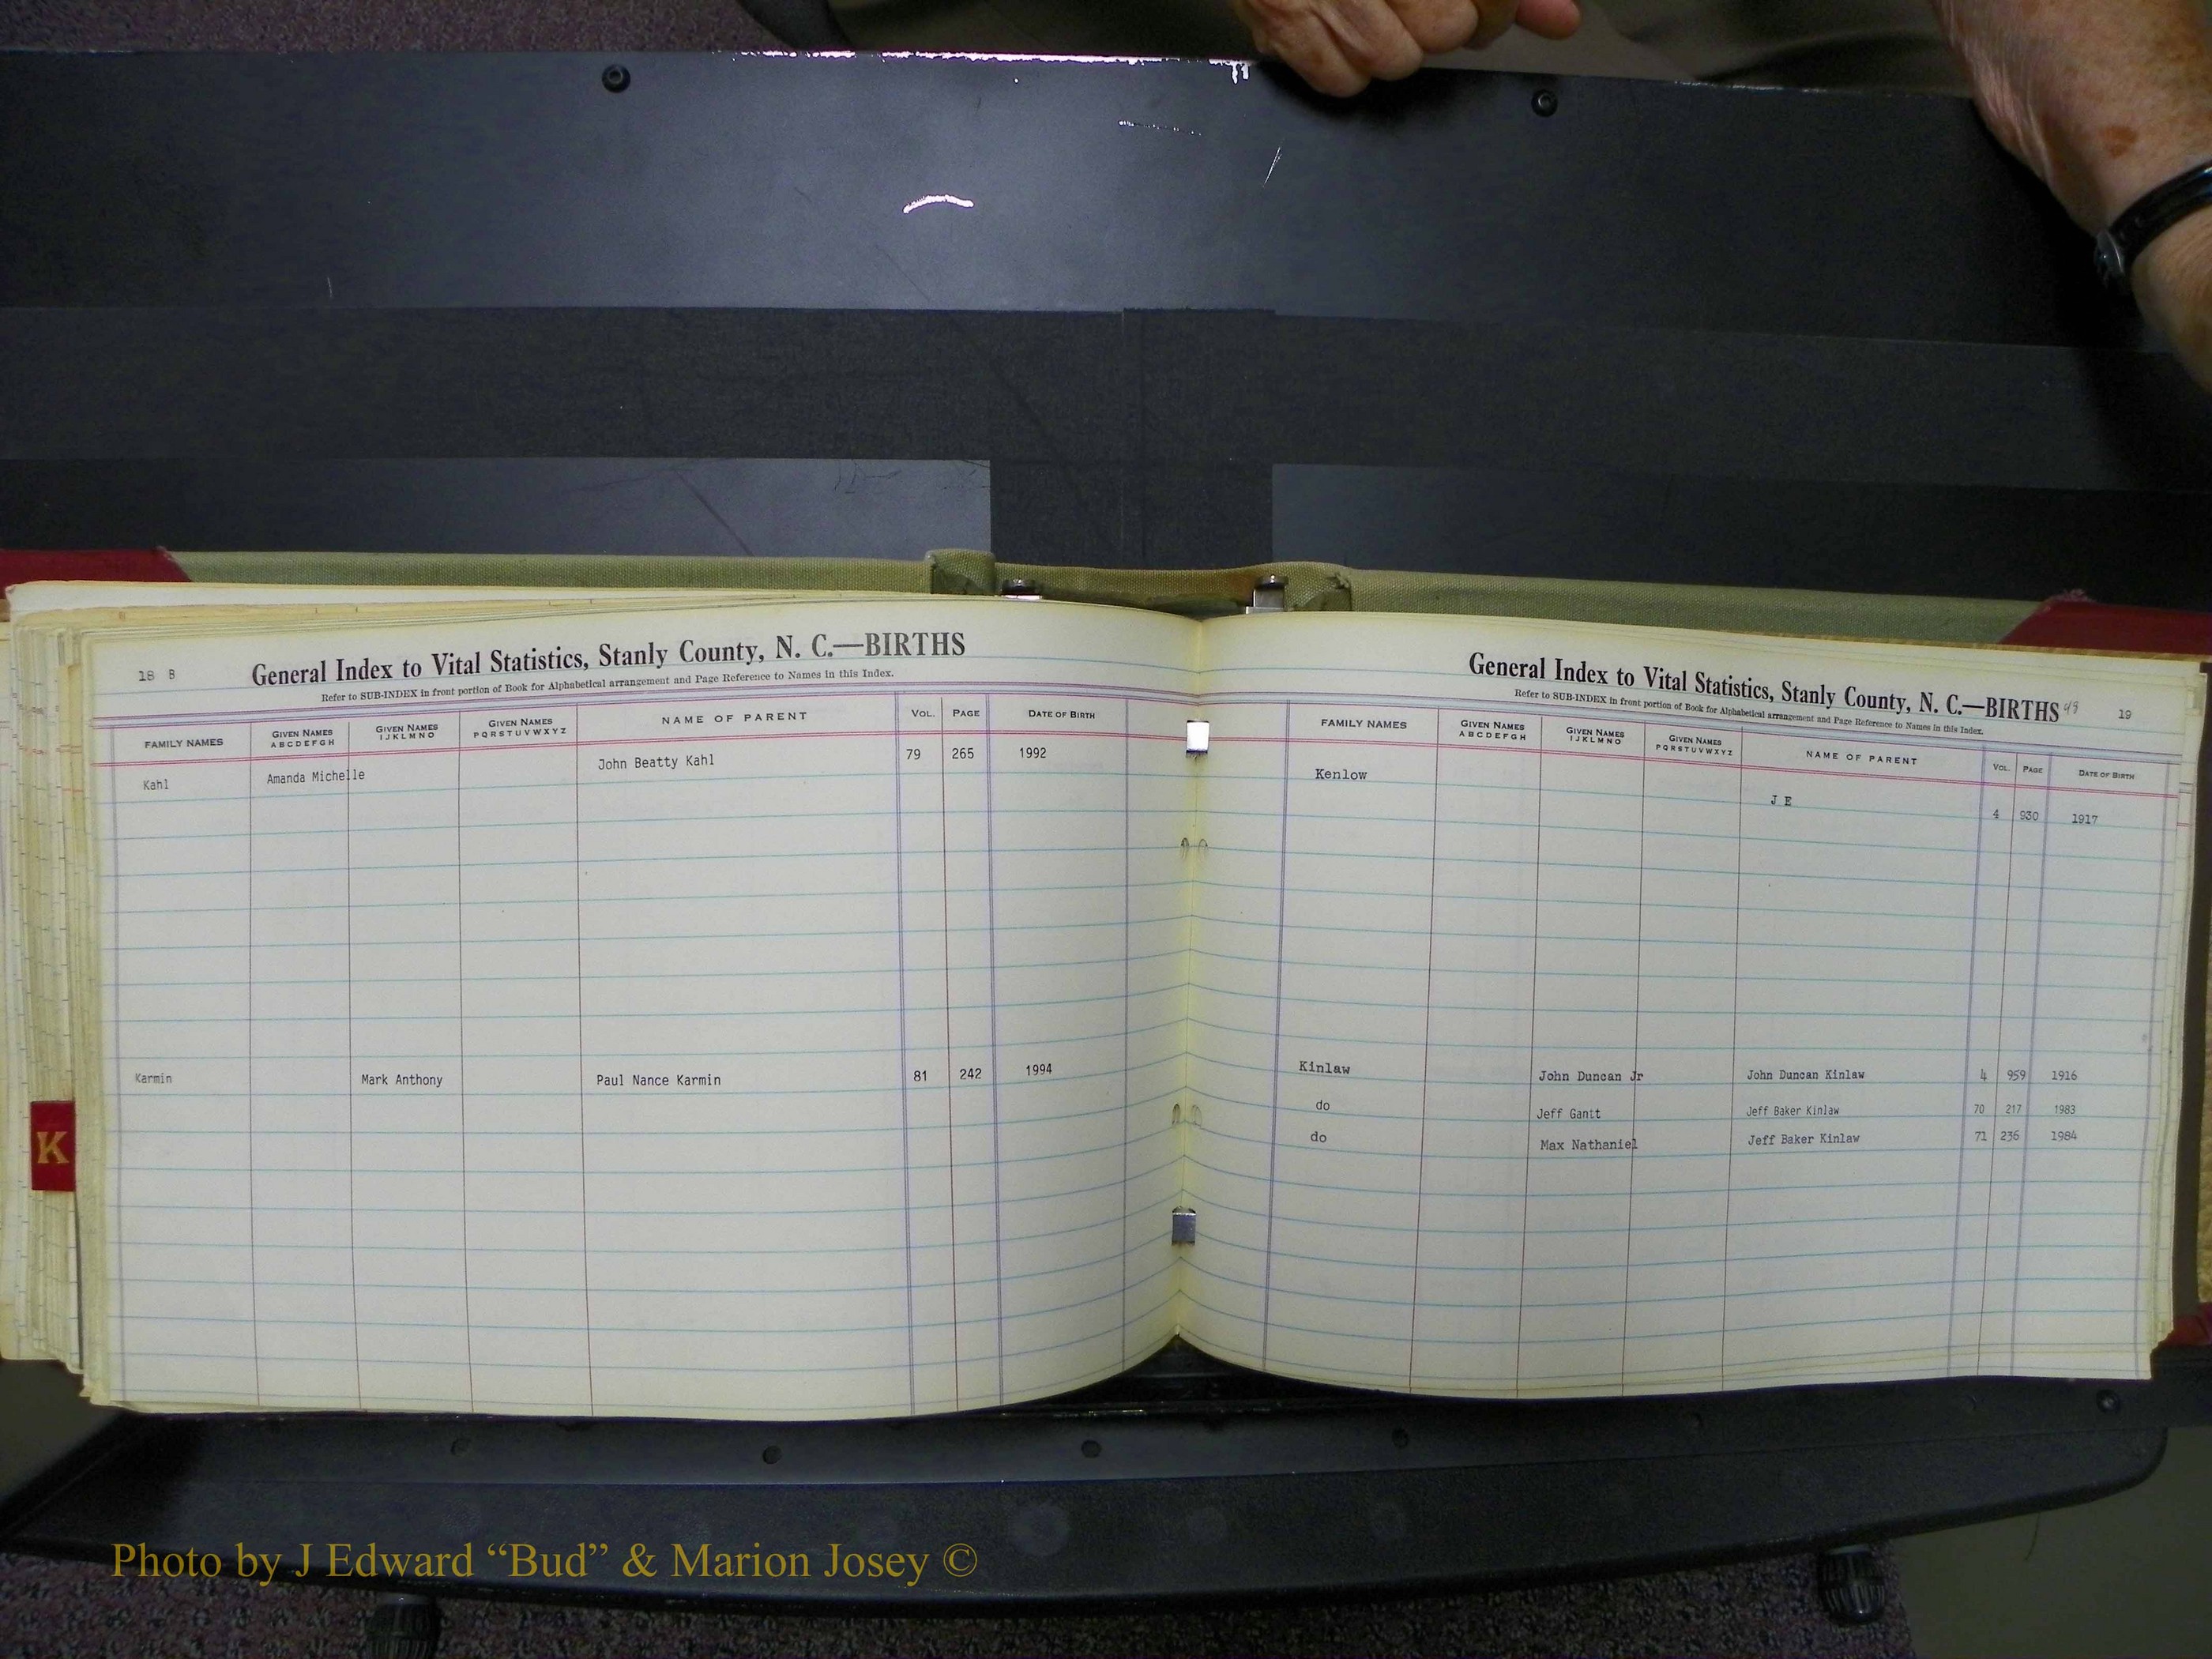 18 B
General Index to Vital Statistics, Stanly County, N. C.—BIRTHS
Refer to SUB-INDEX in front portion of Book for Alphabetical arrangement and Page Reference to Names in this Index.
FAMILY NAMES GIVEN NAMES ABCDEFGH GIVEN NAMES IJKLMNO GIVEN NAMES PQRSTUVWXYZ NAME OF PARENT VOL. PAGE DATE OF BIRTH
Kahl Amanda Michelle John Beatty Kahl 79 265 1992
Karmin Mark Anthony Paul Nance Karmin 81 242 1994
K
General Index to Vital Statistics, Stanly County, N. C.—BIRTHS 19
Refer to SUB-INDEX in front portion of Book for Alphabetical arrangement and Page Reference to Names in this Index.
FAMILY NAMES GIVEN NAMES ABCDEFGH GIVEN NAMES IJKLMNO GIVEN NAMES PQRSTUVWXYZ NAME OF PARENT VOL. PAGE DATE OF BIRTH
Kenlow J E 4 930 1917
Kinlaw John Duncan Jr John Duncan Kinlaw 4 959 1916
do Jeff Gantt Jeff Baker Kinlaw 70 217 1983
do Max Nathaniel Jeff Baker Kinlaw 71 236 1984
Photo by J Edward “Bud” & Marion Josey ©